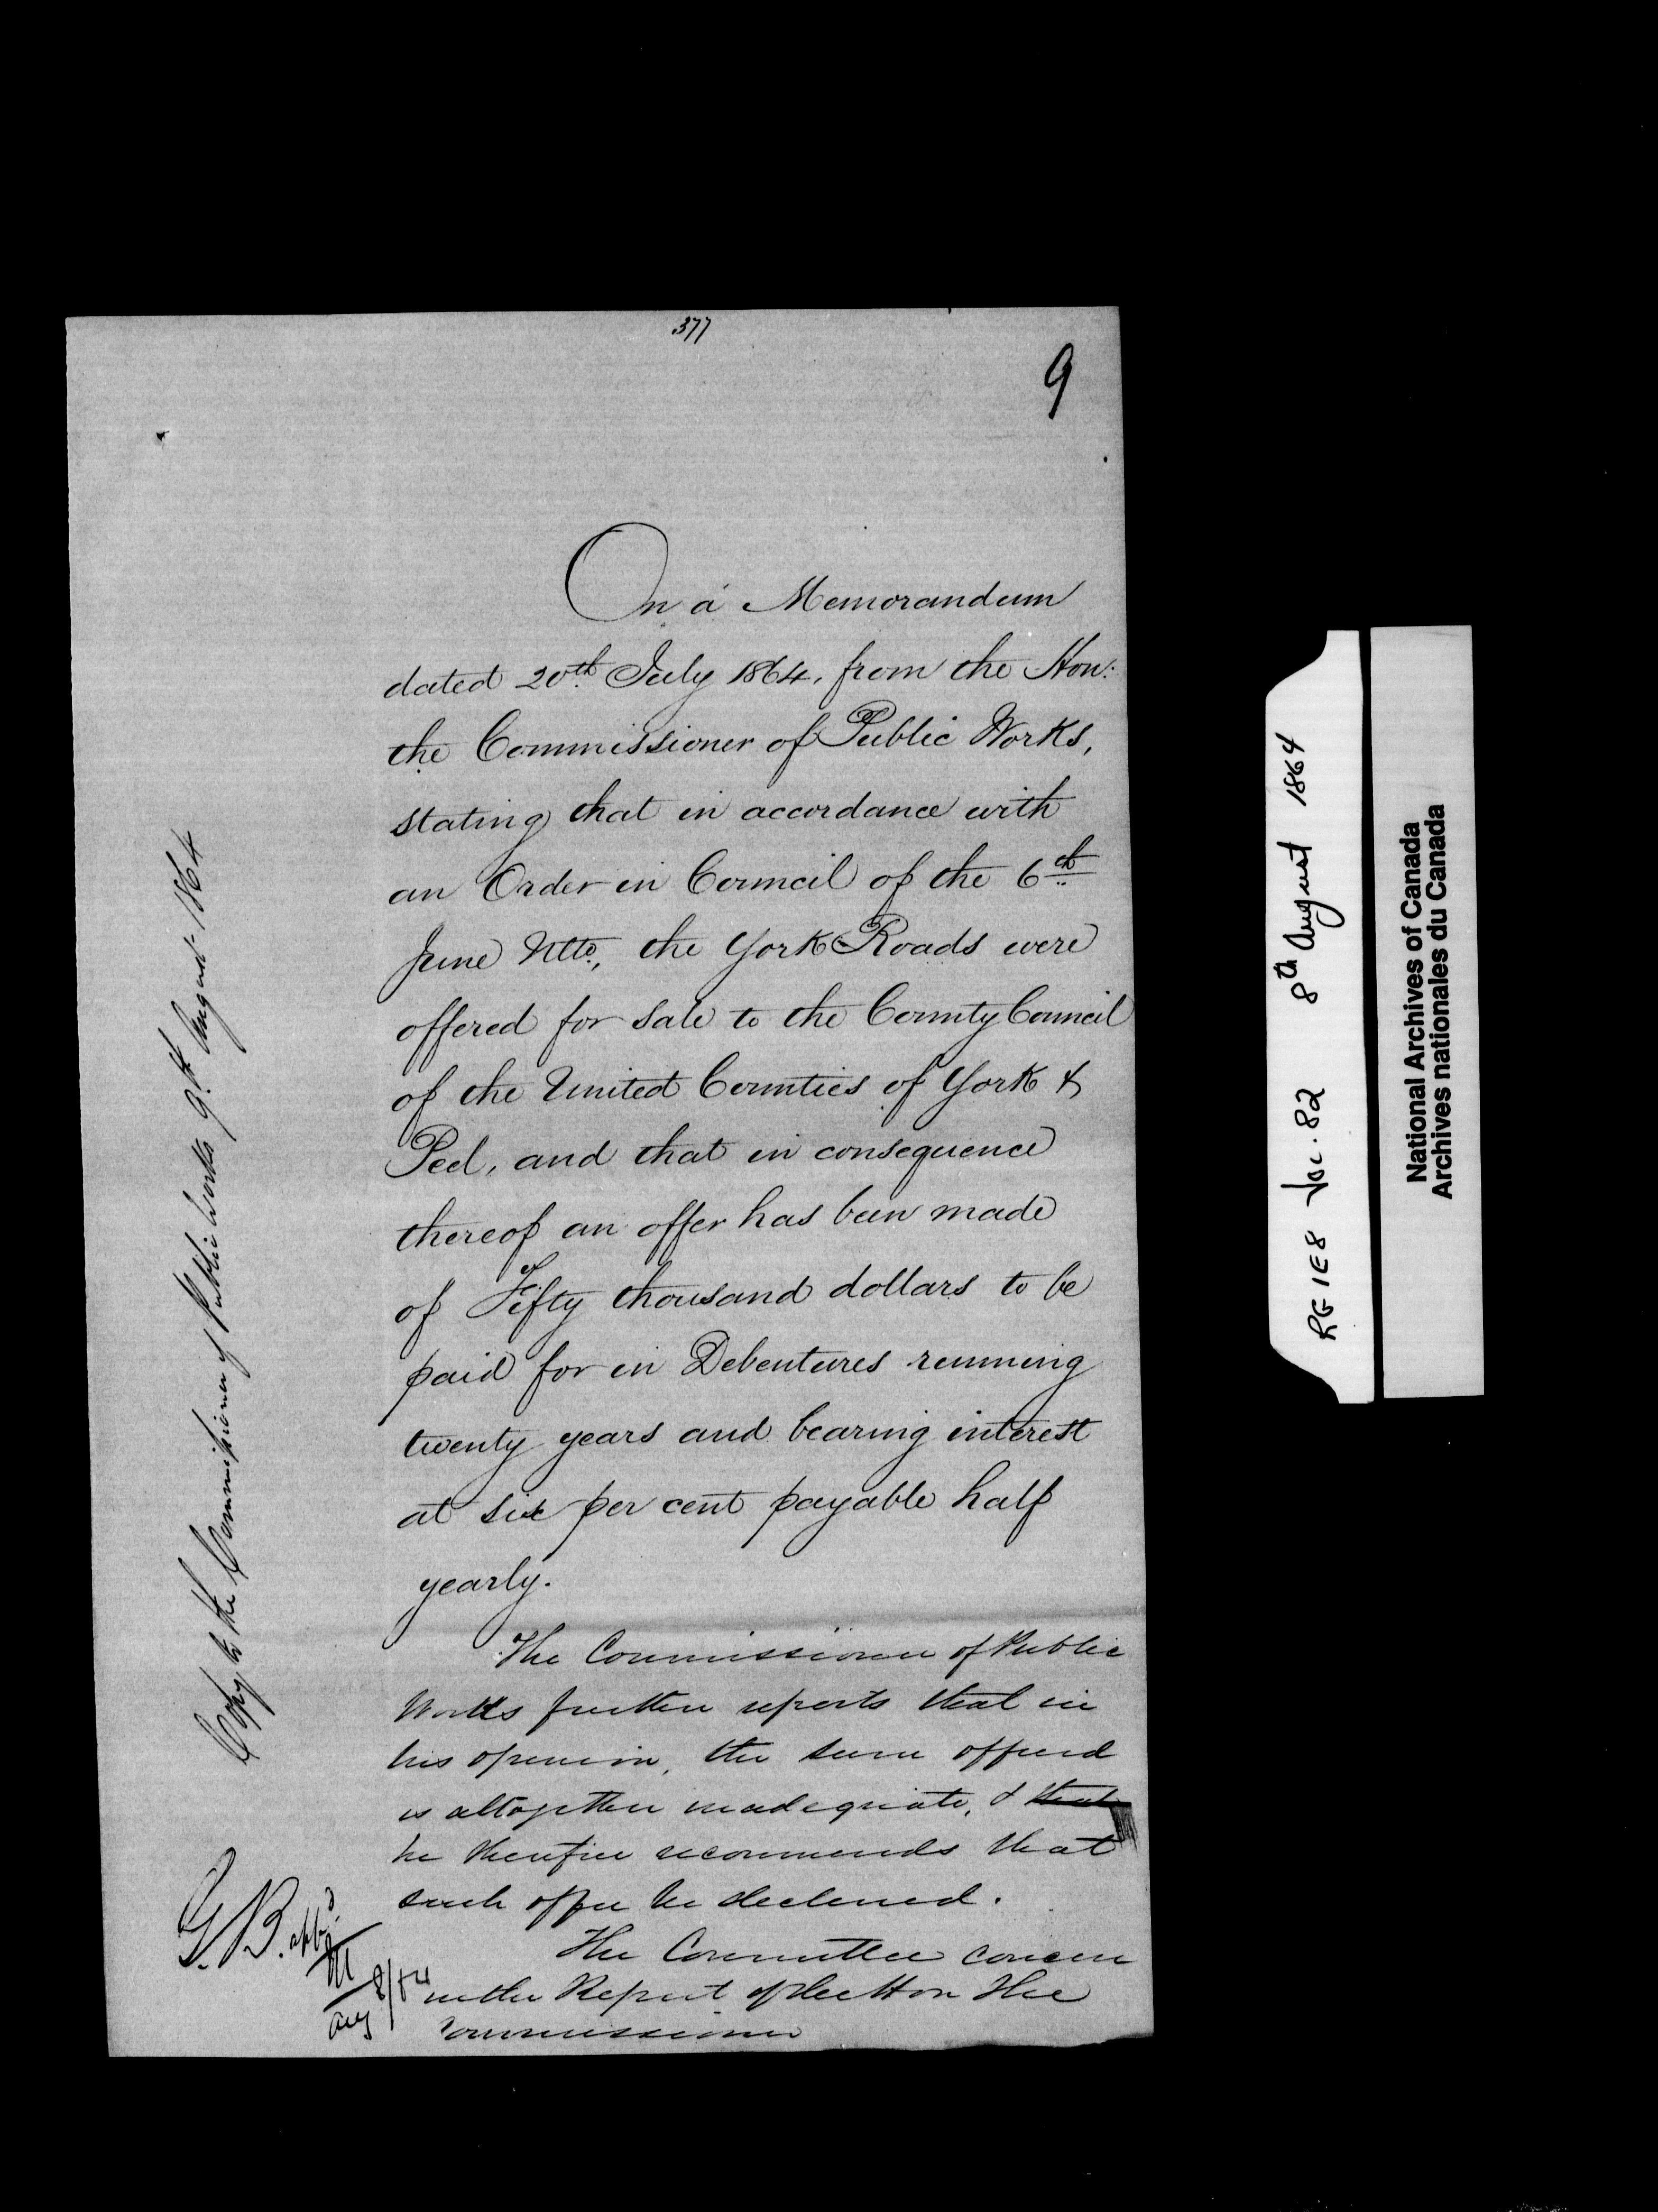 377
9
On a Memorandum
dated 20th July 1864, from the Hon:
the Commissioner of Public Works,
stating that in accordance with
an Order in Council of the 6th
June Ulto, the York Roads were
offered for sale to the County Council
of the United Counties of York &
Peel, and that in consequence
thereof an offer has been made
of Fifty thousand dollars to be
paid for in Debentures running
twenty years and bearing interest
at six per cent payable half
yearly.
The Commissioner of Public
Works further reports that in
his opinion, the sum offered
is altogether inadequate, & that
he therefore recommends that
such offer be declined.
The Committee concur
in the Report of the Hon The
Commissioner
Copy to the Commissioner of Public Works 9th August 1864
G.B. appd
M
Aug 8/64
RG 1 E8 Vol. 82 8th August 1864
National Archives of Canada
Archives nationales du Canada